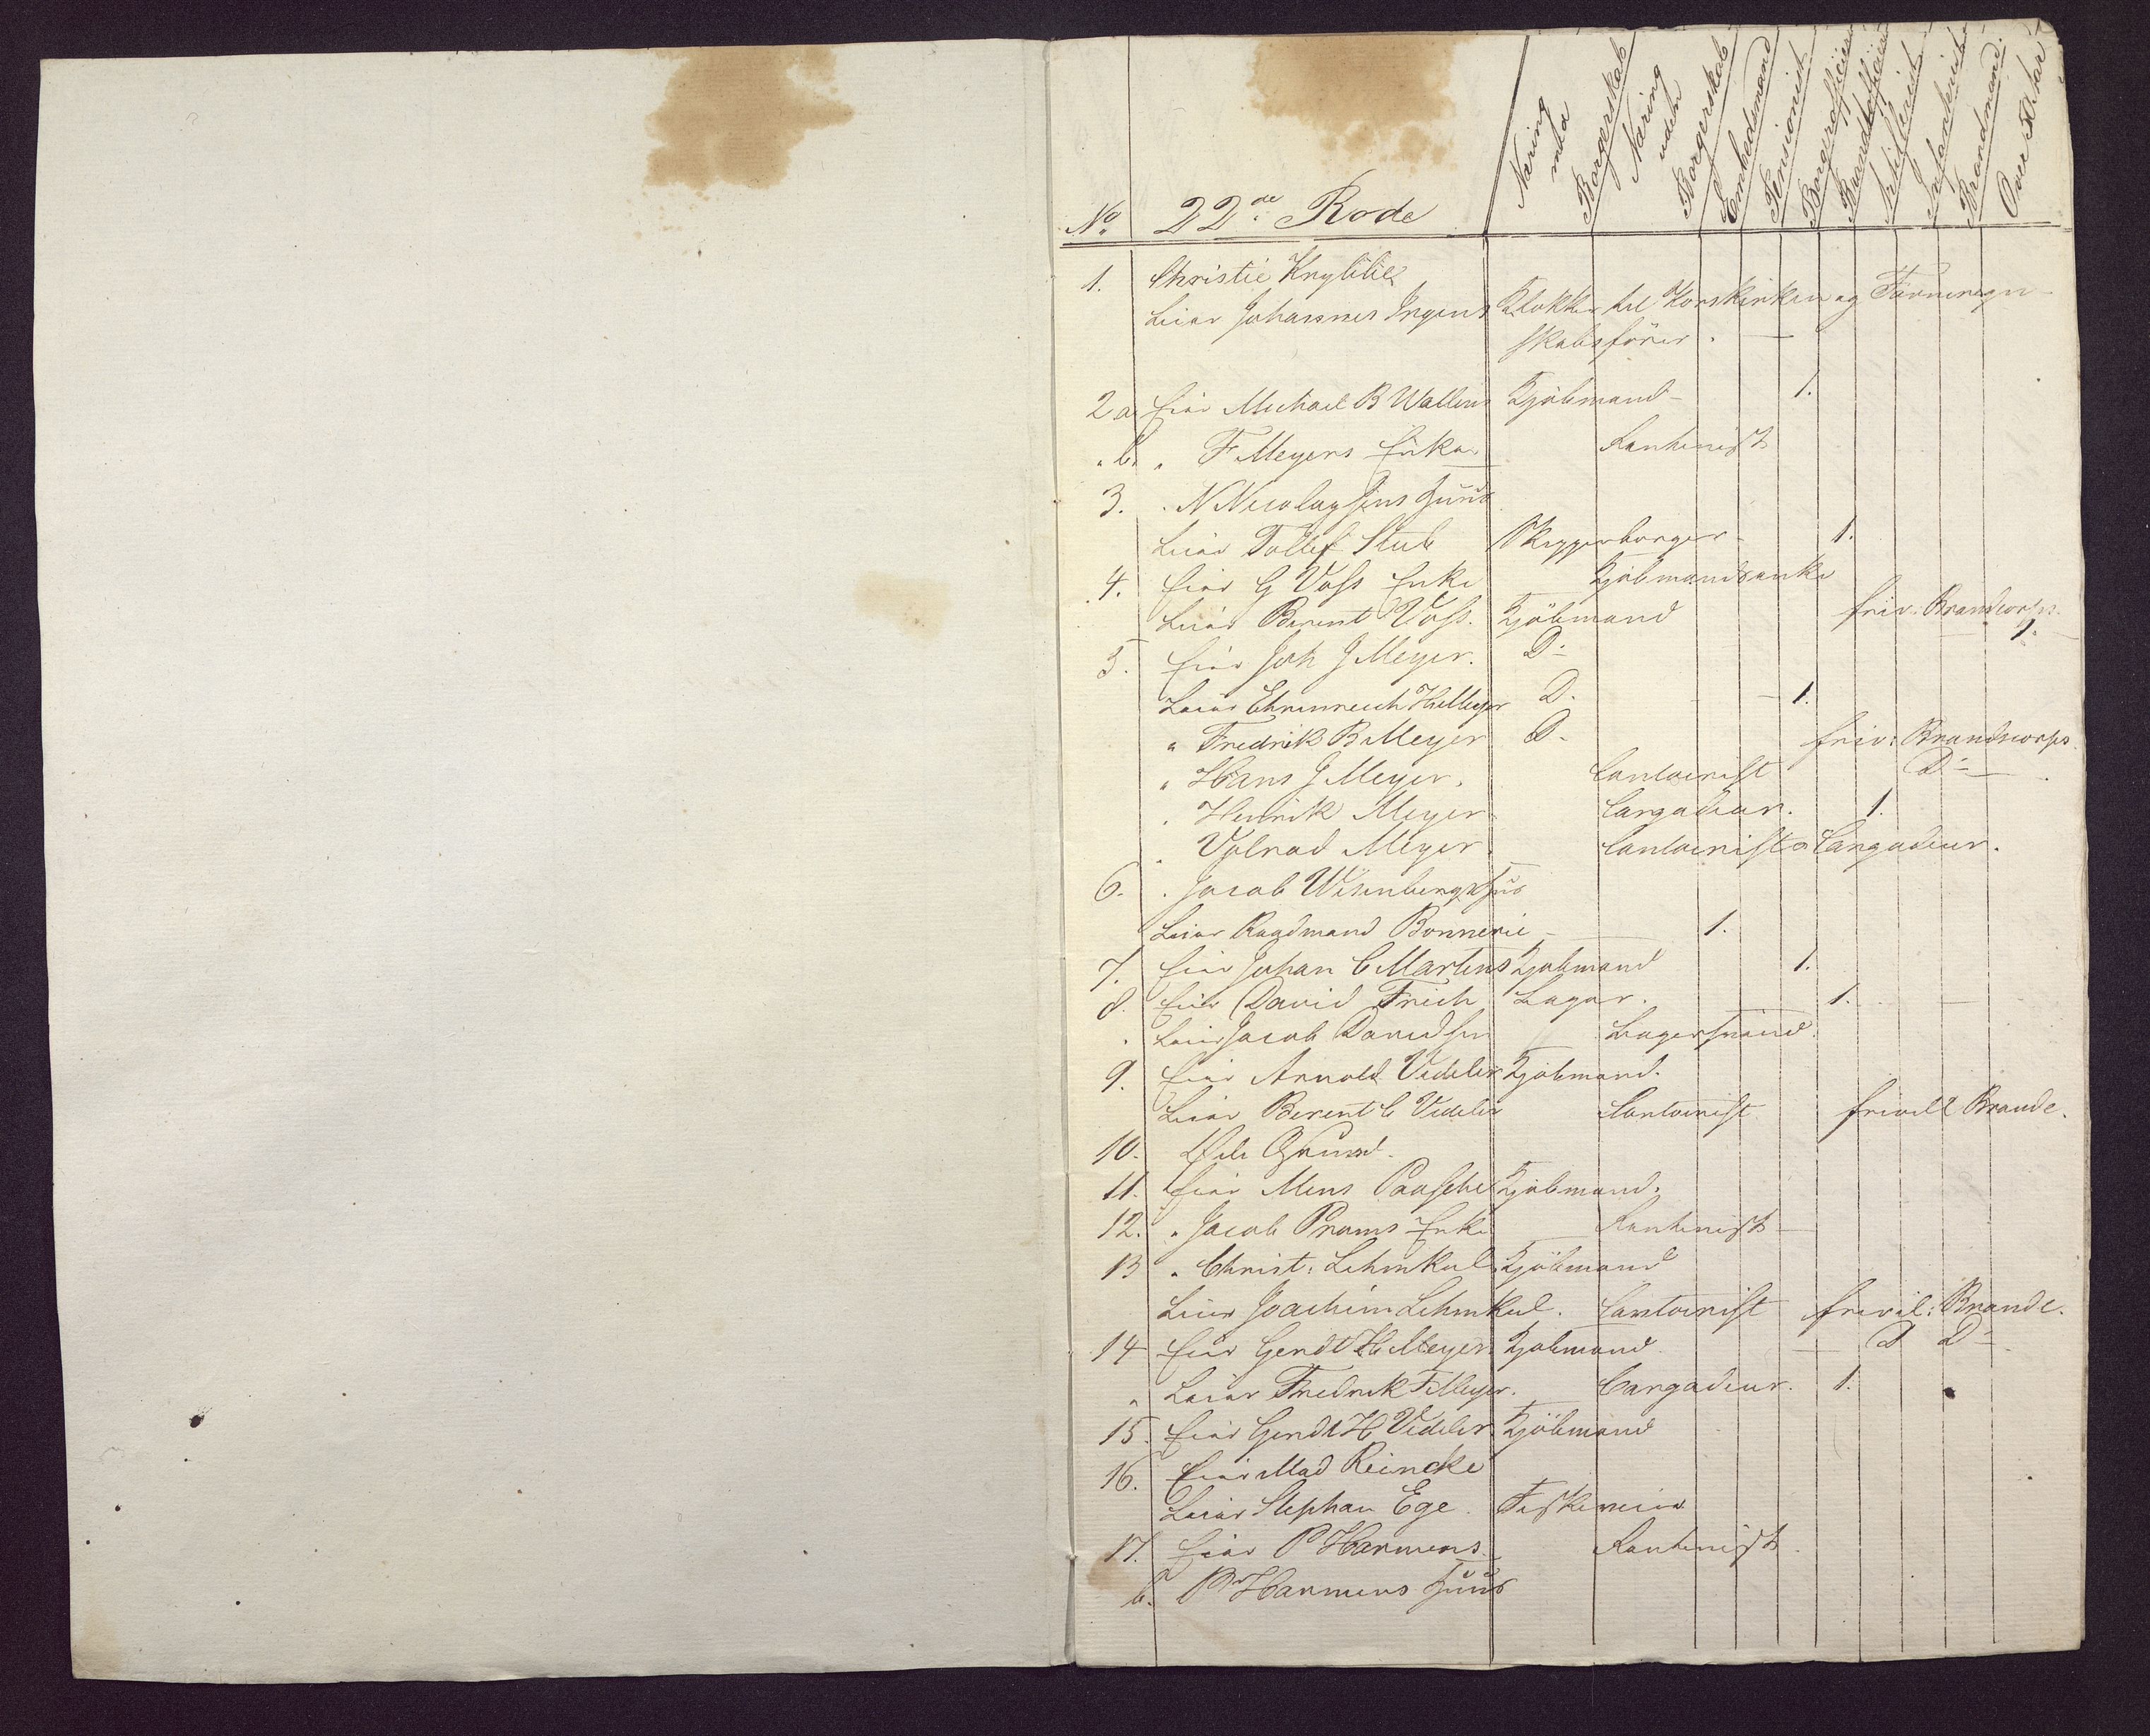 No 22de Rode
Næring med Borgerskab
Næring uden Borgerskab
Embedsmand
Pensionist
Borgerofficier
Brandofficier
Artillerist
Infanterist
Brandmand
Over 50 Aar
1. Christie
Leier Johannes Irgens Klokker til Korskirken og
skabsförer.
2 a Eier Michael B Wallem Kjöbmand 1.
" b. " F Meyers Enke Rentenist
3. " N Nicolaysens Huus
Leier Tollef Stub Skipperborger 1.
4. Eier G Voss Enke Kjöbmandsenke
Leier Berent Voss. Kjöbmand friv. Brandcorps.
5. Eier Joh J Meyer. Do 1.
Leier Ehrenreich Meyer D. 1.
" Fredrik B Meyer D. friv: Brandcorps
" Hans J Meyer. Contoirist Do
" Henrik Meyer Cargadeur. 1.
" Volrad Meyer Contoirist o Cargadeur.
6. " Jacob Wesenbergs Huus
Leier Raadmand Bonnevie 1.
7. Eier Johan C Martens Kjøbmand 1.
8. Eier David Frich Bager. 1.
" Leier Jacob Davidsen Bagersvend
9. Eier Arnold Vedeler Kjøbmand.
Leier Berent C Vedeler Contoirist frivill Brandc.
10. Öde Grund.
11. Eier Mens Paasche Kjøbmand.
12. " Jacob Prams Enke Rentenist
13 " Christ: Lehmkul Kjöbmand
Leier Joachim Lehmkul. Contoirist frivil: Brandc.
14 Eier Gerdt H Meyer Kjøbmand D Do
" Leier Fredrik F Meyer. Cargadeur. 1.
15. Eier Gerdt H Vedeler Kjöbmand
16. Eier Mad Reincke
Leier Stephan Ege.
17. Eier P Harmens Rentenist.
b. P Harmens Huus